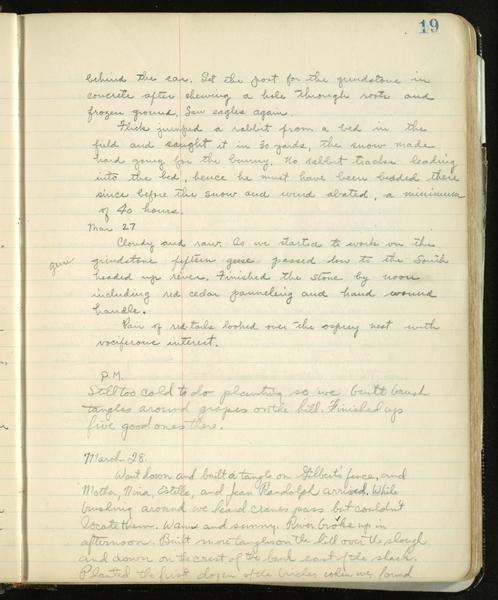 19
behind the car. Set the post for the grindstone in
concrete after chewing a hole through roots and
frozen ground. Saw eagles again.
Flick jumped a rabbit from a bed in the
field and caught it in 30 yards, the snow made
hard going for the bunny. No rabbit tracks leading
into the bed, hence he must have been bedded there
since before the snow and wind abated, a minimum
of 40 hours.
Mar 27
Cloudy and raw. As we started to work on the
geese
grindstone fifteen geese passed low to the South
headed up river. Finished the stone by noon
including red cedar panneling and hand wound
handle.
Pair of redtails looked over the osprey nest with
vociferous interest.
P.M.
Still too cold to do planting so we built brush
tangles around grapes on the hill. Finished up
five good ones there.
March 28.
Went down and built a tangle on Gilbert's fence, and
Mother, Nina, Estella, and Jean Randolph arrived. While
brushing around we heard cranes pass but couldn't
locate them. Warm and sunny. River broke up in
afternoon. Built more tangles on the hill over the slough
and down on the crest of the bank east of the shack.
Planted the first dozen of the birches when we found